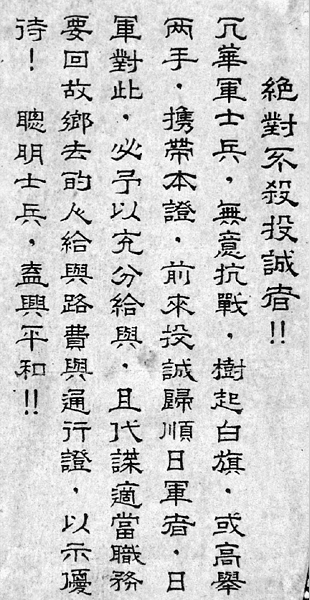 絕對不殺投誠者!!
凡華軍士兵，無意抗戰，樹起白旗，或高舉
兩手，携帶本證，前來投誠歸順日軍者，日
軍對此，必予以充分給與，且代謀適當職務
要回故鄉去的人給與路費與通行證，以示優
待！　聰明士兵，盍興平和!!